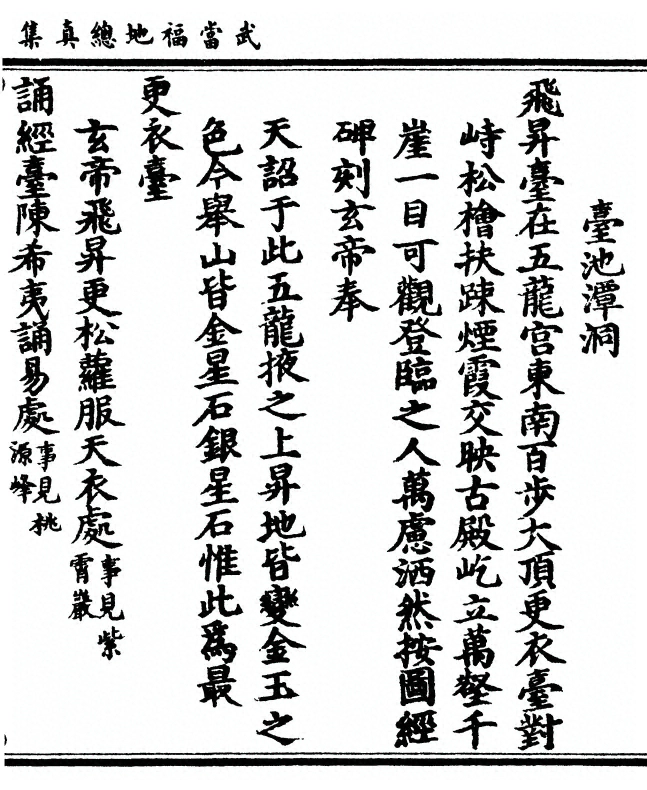 武當福地總真集
臺池潭洞
飛昇臺在五龍宮東南百步大頂更衣臺對
峙松檜扶踈煙霞交映古殿屹立萬壑千
崖一目可觀登臨之人萬慮洒然按圖經
碑刻玄帝奉
天詔于此五龍掖之上昇地皆變金玉之
色今舉山皆金星石銀星石惟此爲最
更衣臺
玄帝飛昇更松蘿服天衣處事見紫霄巖
誦經臺陳希夷誦易處事見桃源峰